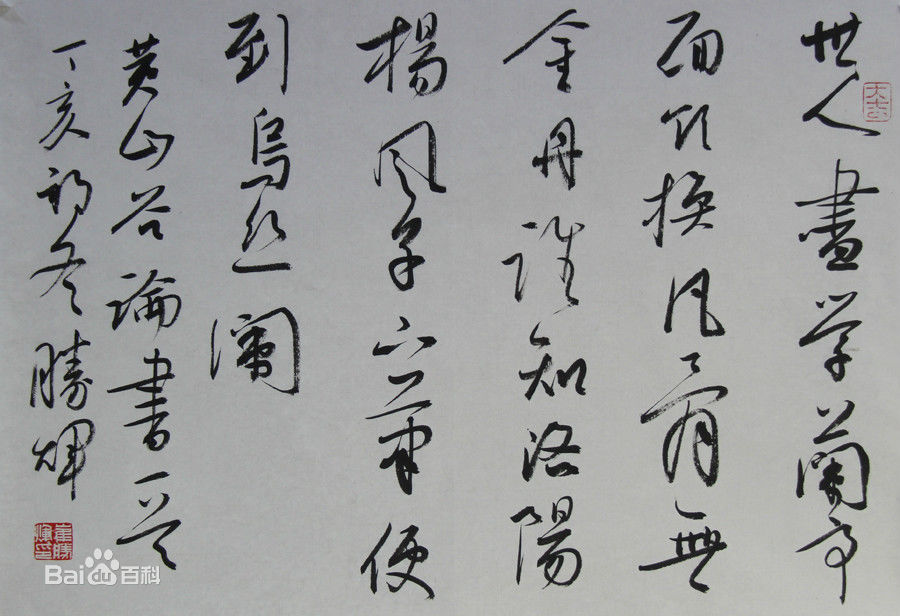 世人盡学蘭亭
面欲換凡骨無
金丹誰知洛陽
楊風子下筆便
到烏絲闌
黄山谷論書一首
丁亥初冬勝煇
崔勝煇印
Bai百科